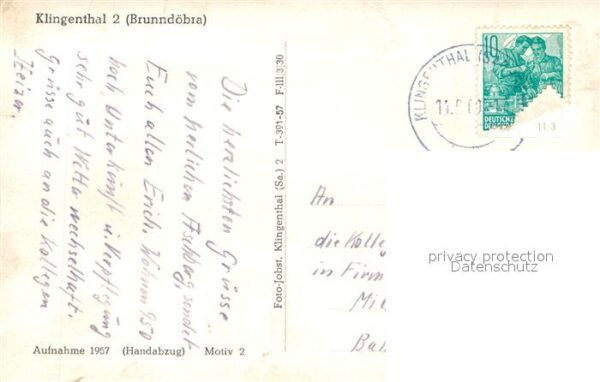 Klingenthal 2 (Brunndöbra)
Die herzlichsten Grüsse
vom herlichen Aschberg sendet
Euch allen Erich. Wohnen 950
hoch Unterkunft u. Verpflegung
sehr gut Wetter wechselhaft.
Grüsse auch an die Kollegen
Heizer.
Aufnahme 1957 (Handabzug) Motiv 2
Foto-Jobst, Klingenthal (Sa.) 2 T-391-57 F-III 3 30
KLINGENTHAL
10
DEUTSCHE
11:3
An
die Kolle
in Firm
Mi
Ba
privacy protection
Datenschutz